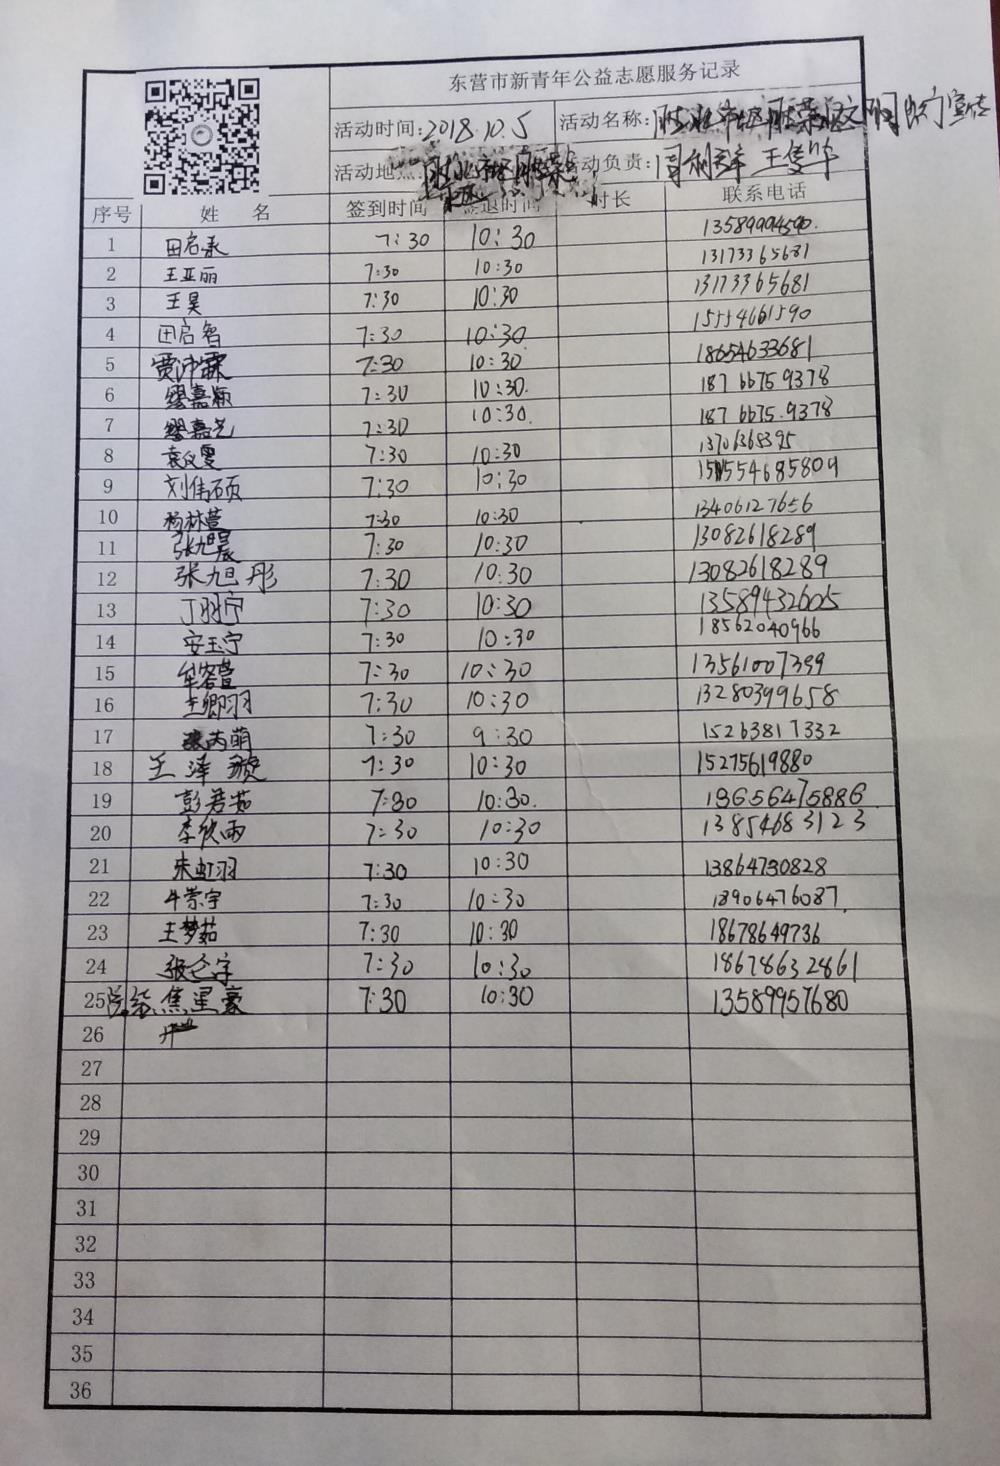 东营市新青年公益志愿服务记录
活动时间:2018.10.5 活动名称:
活动地点: 活动负责:
序号 姓 名 签到时间 签退时间 时长 联系电话
1 田启承 7:30 10:30
2 王亚丽 7:30 10:30 13173365681
3 王昊 7:30 10:30 13173365681
4 田启智 7:30 10:30 15554661590
5 贾沛霖 7:30 10:30 18654633681
6 缪嘉颖 7:30 10:30. 187 6675 9378
7 缪嘉艺 7:30 10:30. 187 6675.9378
8 袁仪雯 7:30 10:30 13706368395
9 刘伟硕 7:30 10:30
10 杨林萱 7:30 10:30 13406127656
11 张旭晨 7:30 10:30 13082618289
12 张旭彤 7:30 10:30 13082618289
13 丁羽宁 7:30 10:30 13589432605
14 安玉宁 7:30 10:30 18562040966
15 牟容萱 7:30 10:30 13561007399
16 王卿羽 7:30 10:30 13280399658
17 芮萌 7:30 9:30 15263817332
18 王泽璇 7:30 10:30 15275619880
19 彭君茹 7:30 10:30. 13656475886
20 李欣雨 7:30 10:30 13854683123
21 朱虹羽 7:30 10:30 13864730828
22 牛崇宇 7:30 10:30 18906476087.
23 王梦茹 7:30 10:30 18678649736
24 张 宇 7:30 10:30 18678632861
25 焦星豪 7:30 10:30 13589957680
26
27
28
29
30
31
32
33
34
35
36